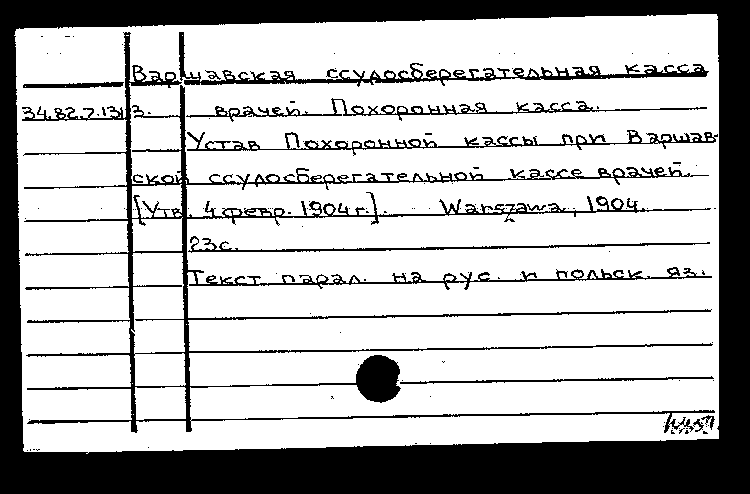 Варшавская ссудосберегательная касса
34.82.7.131 3. врачей. Похоронная касса.
Устав Похоронной кассы при Варшав-
ской ссудосберегательной кассе врачей.
[Утв. 4 февр. 1904 г.]. Warszawa, 1904.
23с.
Текст парал. на рус. и польск. яз.